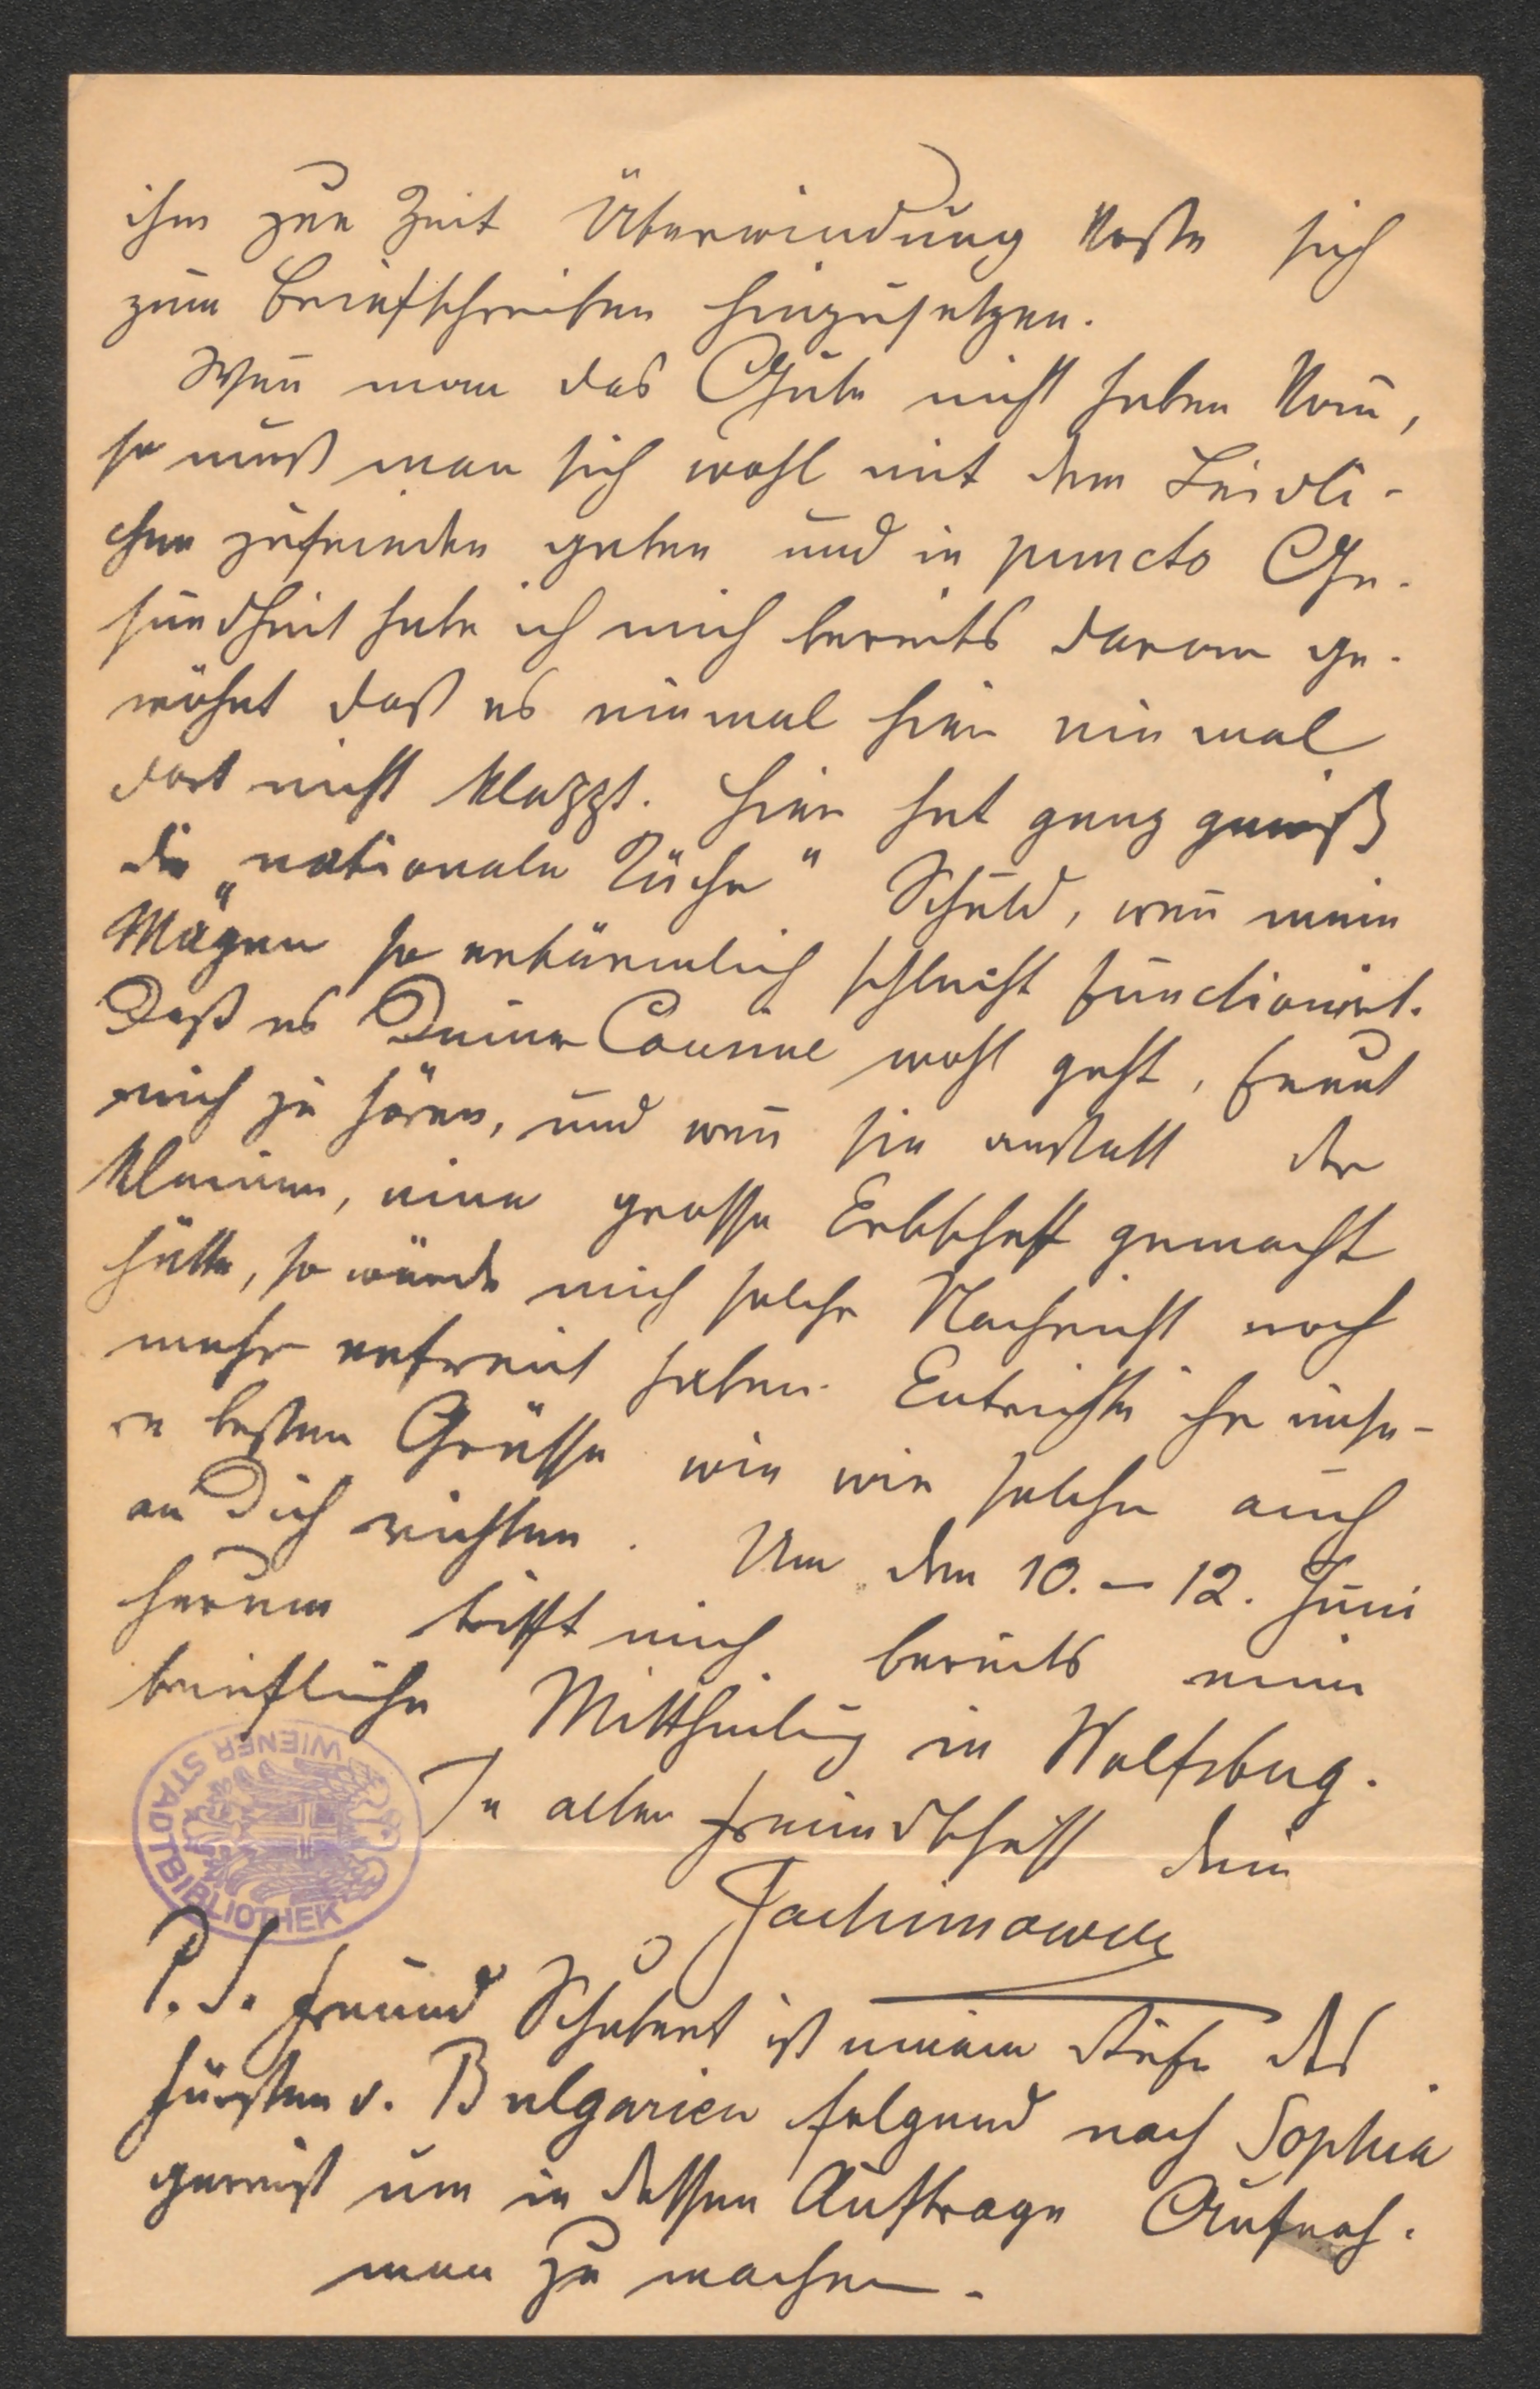 ihm zur Zeit Überwindung koste sich
zum Briefschreiben hinzusetzen.
Wen̄ man das Gute nicht haben kan̄,
so muß man sich wohl mit dem Leidli-
chen zufrieden geben und in puncto Ge-
sundheit habe ich mich bereits daran ge-
wöhnt daß es einmal hier einmal
dort nicht klappt. Hier hat ganz gewiß
die „nationale Küche" Schuld, wen̄ mein
Magen so erbärmlich schlecht functionirt.
Daß es Deiner Cousine wohl geht, freut
mich zu hören, und wen̄ sie anstatt der
kleinen, eine grosse Erbschaft gemacht
hätte, so würde mich solche Nachricht noch
mehr erfreut haben. Entrichte ihr unse-
re besten Grüsse wie wir solche auch
an Dich richten. Um den 10. – 12. Juni
herum trifft mich bereits eine
briefliche Mittheilung in Wolfsberg.
In alter Freundschaft Dein
Jachimowicz
P.S. Freund Schubert ist einem Rufe des
Fürsten v. Bulgarien folgend nach Sophia
gereist um in dessen Auftrage Aufnah-
men zu machen.
WIENER STADTBIBLIOTHEK